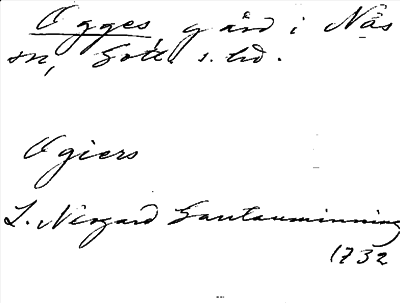 Ogges, gård i Näs
sn, Gotl. s. hd.
Ogiers
L. Nirgard Gautauminning
1732